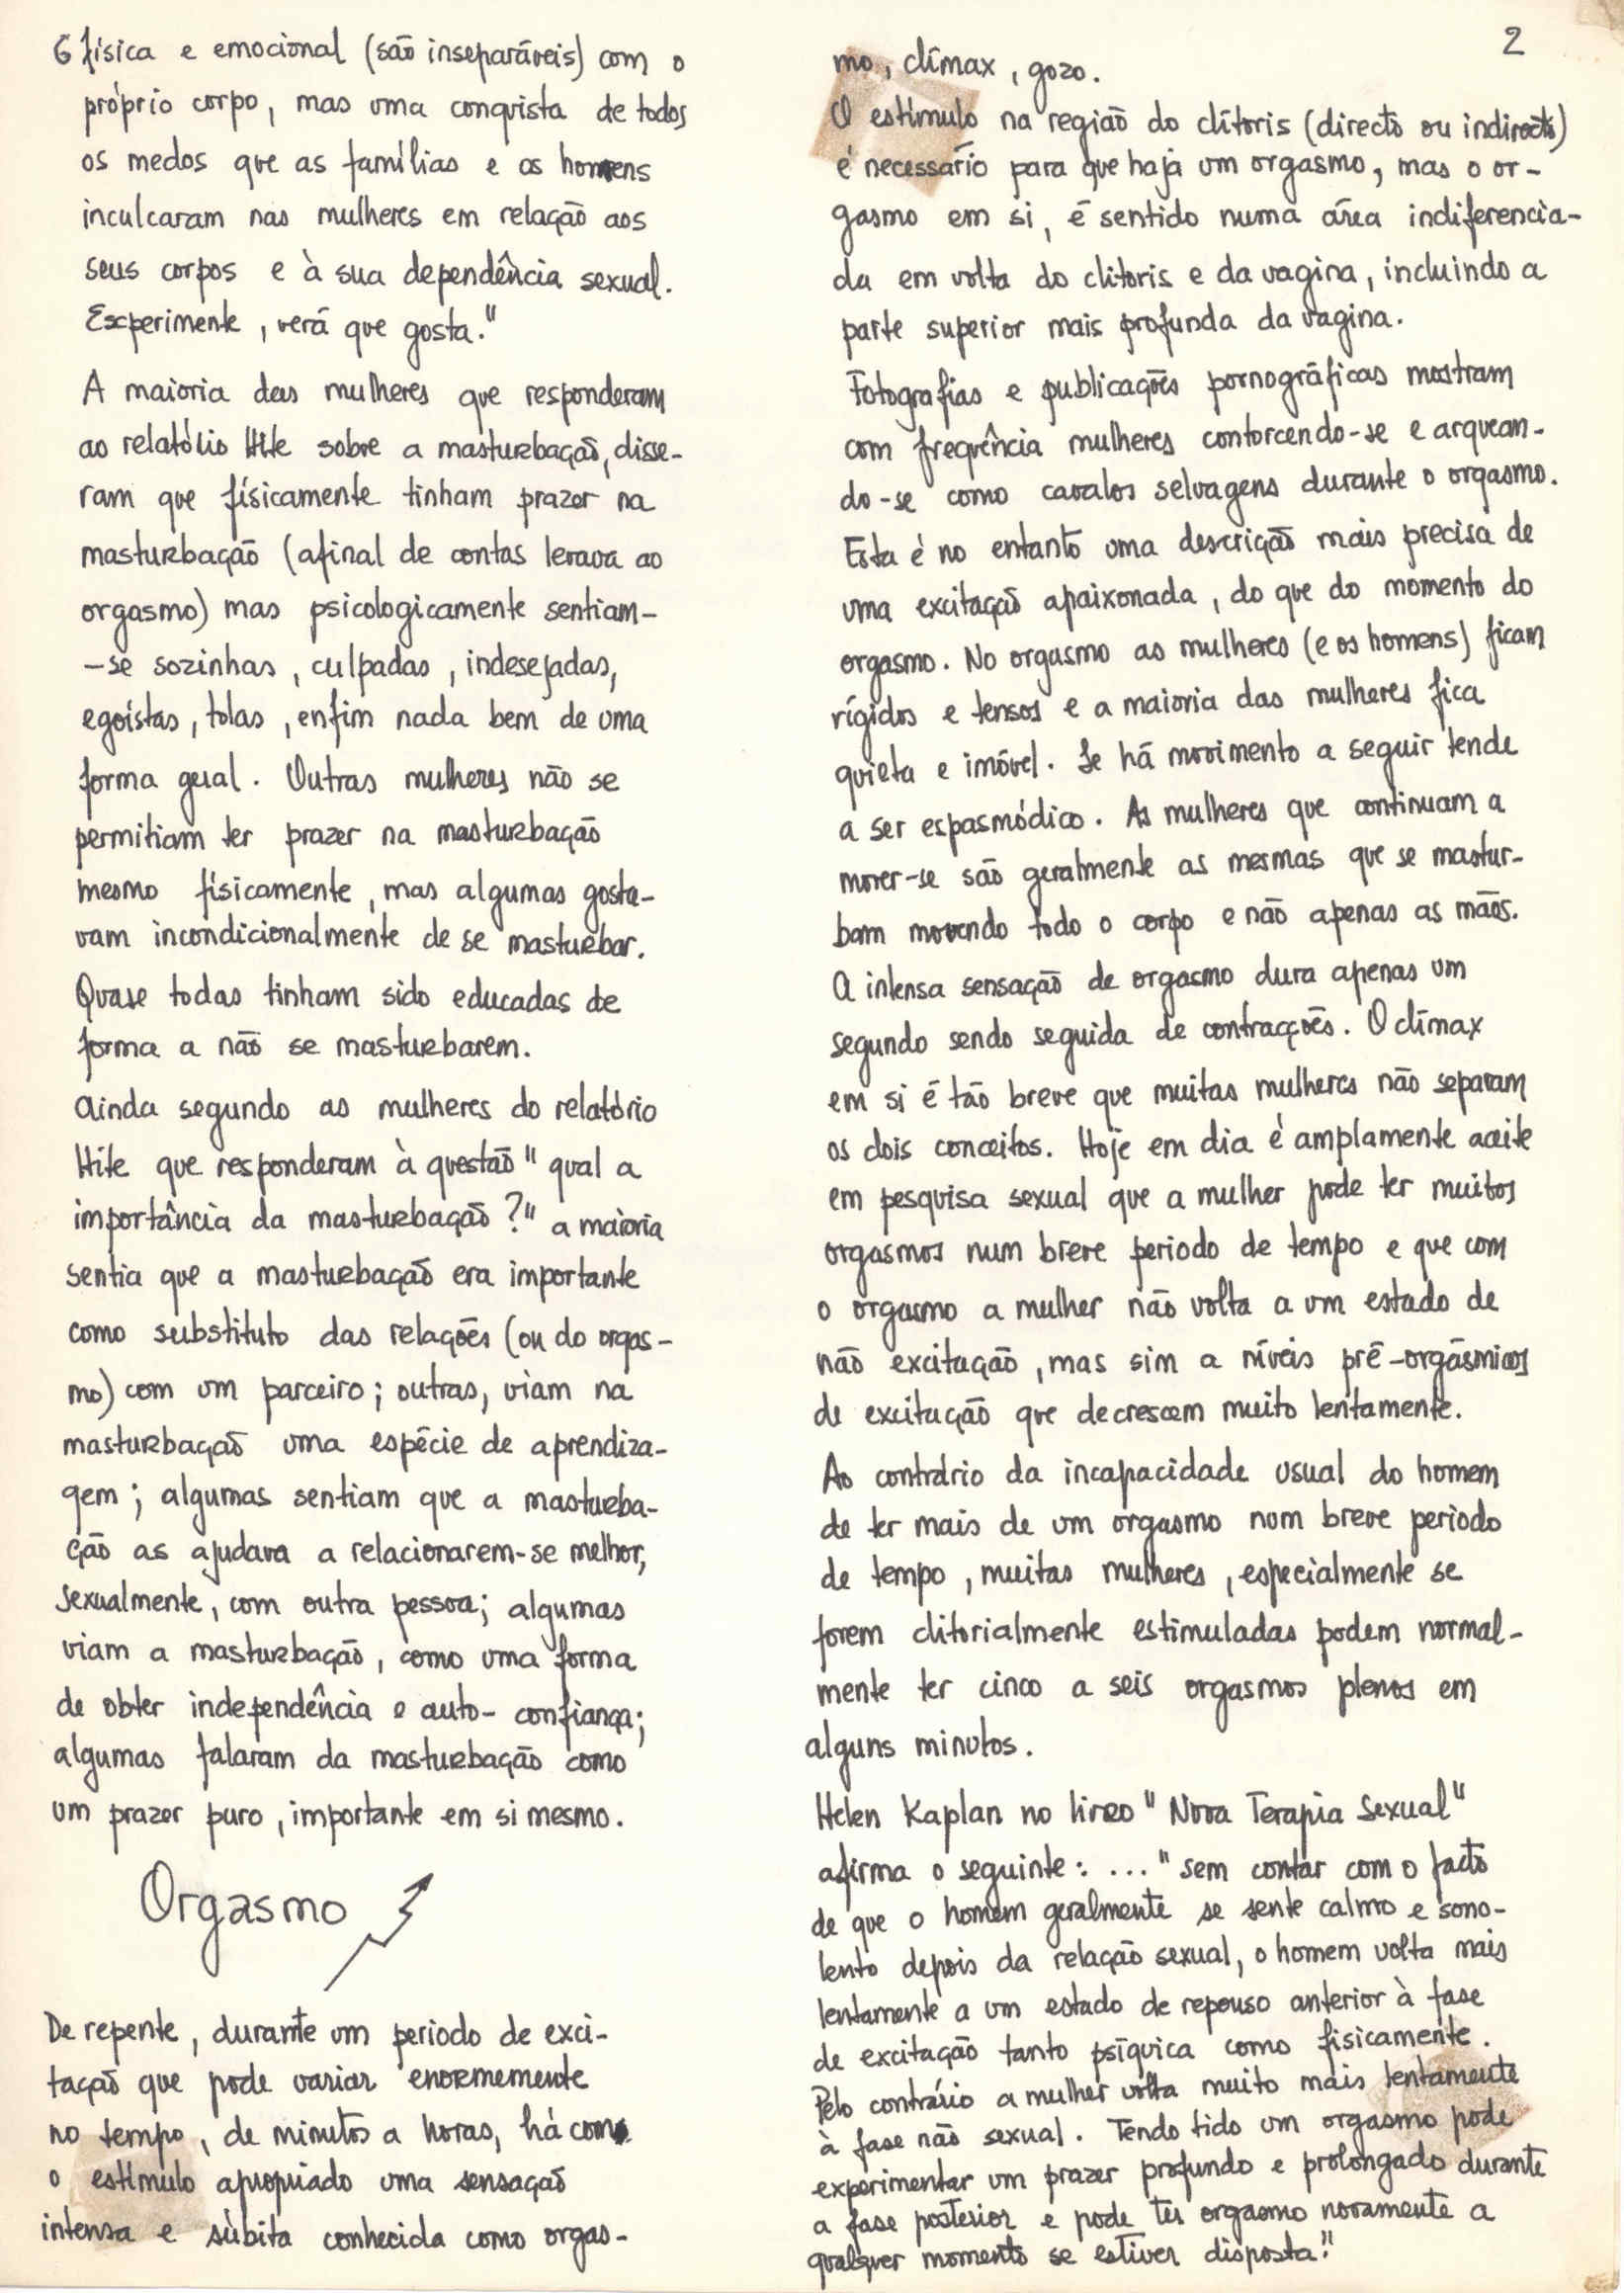 6 física e emocional (são inseparáveis) com o
próprio corpo, mas uma conquista de todos
os medos que as famílias e os homens
inculcaram nas mulheres em relação aos
seus corpos e à sua dependência sexual.
Escperimente, verá que gosta."
A maioria das mulheres que responderam
ao relatólio Hite sobre a masturbação, disse-
ram que físicamente tinham prazer na
masturbação (afinal de contas levava ao
orgasmo) mas psicologicamente sentiam-
-se sozinhas, culpadas, indesejadas,
egoístas, tolas, enfim nada bem de uma
forma geral. Outras mulheres não se
permitiam ter prazer na masturbação
mesmo físicamente, mas algumas gosta-
vam incondicionalmente de se masturbar.
Quase todas tinham sido educadas de
forma a não se masturbarem.
Ainda segundo as mulheres do relatório
Hite que responderam à questão "qual a
importância da masturbação?" a maioria
sentia que a masturbação era importante
como substituto das relações (ou do orgas-
mo) com um parceiro; outras, viam na
masturbação uma espécie de aprendiza-
gem; algumas sentiam que a masturba-
ção as ajudava a relacionarem-se melhor,
sexualmente, com outra pessoa; algumas
viam a masturbação, como uma forma
de obter independência e auto-confiança;
algumas falaram da masturbação como
um prazer puro, importante em si mesmo.
Orgasmo
De repente, durante um periodo de exci-
tação que pode variar enormemente
no tempo, de minutos a horas, há com
o estímulo apropriado uma sensação
intensa e súbita conhecida como orgas-
2
mo, clímax, gozo.
O estímulo na região do clítoris (directo ou indirecto)
é necessário para que haja um orgasmo, mas o or-
gasmo em si, é sentido numa área indiferencia-
da em volta do clitoris e da vagina, incluindo a
parte superior mais profunda da vagina.
Fotografias e publicações pornográficas mostram
com frequência mulheres contorcendo-se e arquean-
do-se como cavalos selvagens durante o orgasmo.
Esta é no entanto uma descrição mais precisa de
uma excitação apaixonada, do que do momento do
orgasmo. No orgasmo as mulheres (e os homens) ficam
rígidos e tensos e a maioria das mulheres fica
quieta e imóvel. Se há movimento a seguir tende
a ser espasmódico. As mulheres que continuam a
mover-se são geralmente as mesmas que se mastur-
bam movendo todo o corpo e não apenas as mãos.
A intensa sensação de orgasmo dura apenas um
segundo sendo seguida de contracções. O clímax
em si é tão breve que muitas mulheres não separam
os dois conceitos. Hoje em dia é amplamente aceite
em pesquisa sexual que a mulher pode ter muitos
orgasmos num breve periodo de tempo e que com
o orgasmo a mulher não volta a um estado de
não excitação, mas sim a níveis pré-orgásmicos
de excitação que decrescem muito lentamente.
Ao contrário da incapacidade usual do homem
de ter mais de um orgasmo num breve periodo
de tempo, muitas mulheres, especialmente se
forem clitorialmente estimuladas podem normal-
mente ter cinco a seis orgasmos plenos em
alguns minutos.
Helen Kaplan no livro "Nova Terapia Sexual"
afirma o seguinte: ..."sem contar com o facto
de que o homem geralmente se sente calmo e sono-
lento depois da relação sexual, o homem volta mais
lentamente a um estado de repouso anterior à fase
de excitação tanto psíquica como fisicamente.
Pelo contrário a mulher volta muito mais lentamente
à fase não sexual. Tendo tido um orgasmo pode
experimentar um prazer profundo e prolongado durante
a fase posterior e pode ter orgasmo novamente a
qualquer momento se estiver disposta."